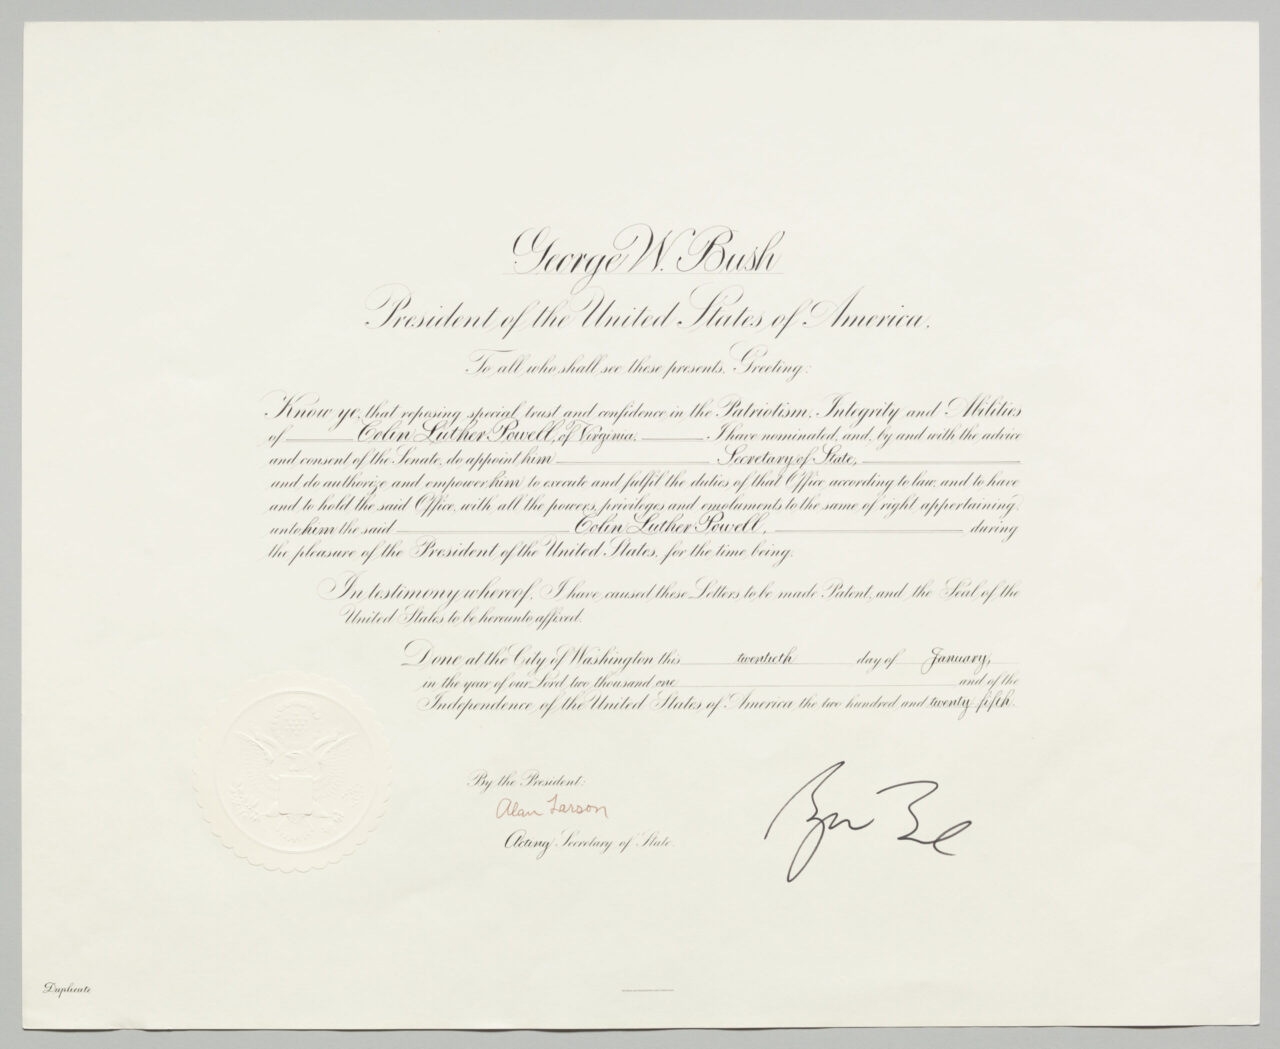 George W. Bush
President of the United States of America.
To all who shall see these presents, Greeting:
Know ye, that reposing special trust and confidence in the Patriotism, Integrity and Abilities
of Colin Luther Powell, of Virginia, I have nominated, and, by and with the advice
and consent of the Senate, do appoint him Secretary of State,
and do authorize and empower him to execute and fulfil the duties of that Office according to law, and to have
and to hold the said Office, with all the powers, privileges and emoluments to the same of right appertaining,
unto him the said Colin Luther Powell, during
the pleasure of the President of the United States, for the time being.
In testimony whereof, I have caused these Letters to be made Patent, and the Seal of the
United States to be hereunto affixed.
Done at the City of Washington this twentieth day of January,
in the year of our Lord two thousand one and of the
Independence of the United States of America the two hundred and twenty fifth.
By the President:
Alan Larson
Acting Secretary of State.
Duplicate